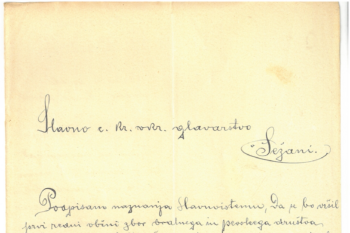 Slavno c. kr. okr. glavarstvo
Sežani.
Podpisani naznanja Slavnoistemu, da se bo vršil
prvi redni občni zbor bralnega in pevskega društva